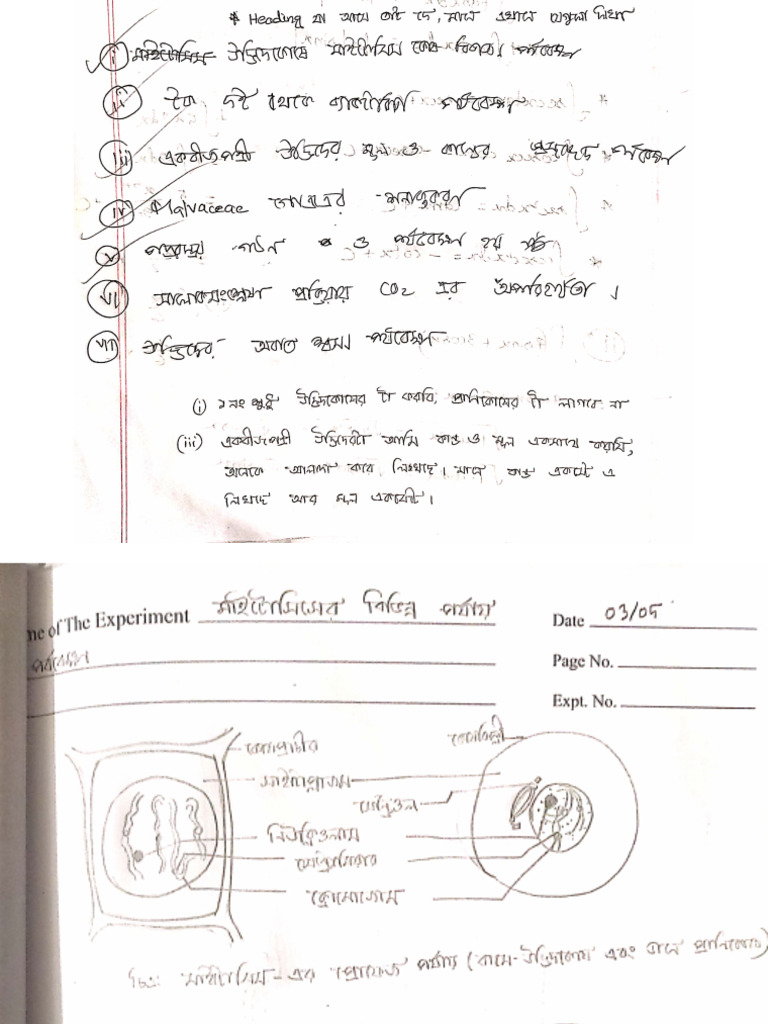 * Heading যা আছে তাই দে, মানে এখানে যেগুলা লিখা
(i) উদ্ভিদকোষে মাইটোসিস কোষ বিভাজন পর্যবেক্ষণ
(ii) টক দই থেকে ব্যাকটেরিয়া পর্যবেক্ষণ
(iii) একবীজপত্রী উদ্ভিদের মূল ও কান্ডের প্রস্থচ্ছেদ পর্যবেক্ষণ
(iv) Malvaceae গোত্রের শনাক্তকরণ
(v) পত্ররন্ধ্রের গঠন ও পর্যবেক্ষণ
(vi) সালোকসংশ্লেষণ প্রক্রিয়ায় CO2 এর অপরিহার্যতা ।
(vii) উদ্ভিদের অবাত শ্বসন পর্যবেক্ষণ
(i) ১নং শুধু উদ্ভিদকোষের টা করবি, প্রাণিকোষের টা লাগবে না
(iii) একবীজপত্রী উদ্ভিদেরটা আমি কান্ড ও মূল একসাথে করসি,
অনেকে আলাদা করে লিখছে। মানে কান্ড একটা এ
লিখছে আর মূল একটা।
me of The Experiment মাইটোসিসের বিভিন্ন পর্যায় Date 03/05
পর্যবেক্ষণ Page No.
Expt. No.
কোষপ্রাচীর কোষঝিল্লী
সাইটোপ্লাজম
সেন্ট্রিওল
নিউক্লিওলাস
সেন্ট্রোমিয়ার
ক্রোমোজোম
চিত্র: মাইটোসিস-এর প্রোফেজ পর্যায় (বামে-উদ্ভিদকোষ এবং ডানে প্রাণিকোষ)